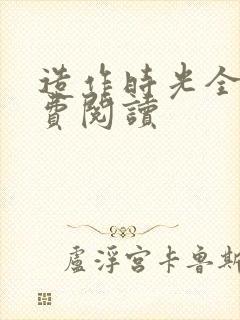 造作時光全
費閱讀
盧浮宮卡魯斯